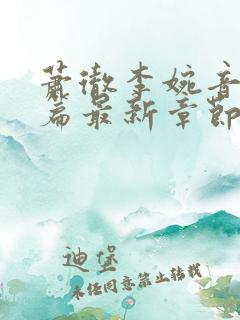 萧澈李婉音
篇最新章节
迪堡
未经同意禁止转载